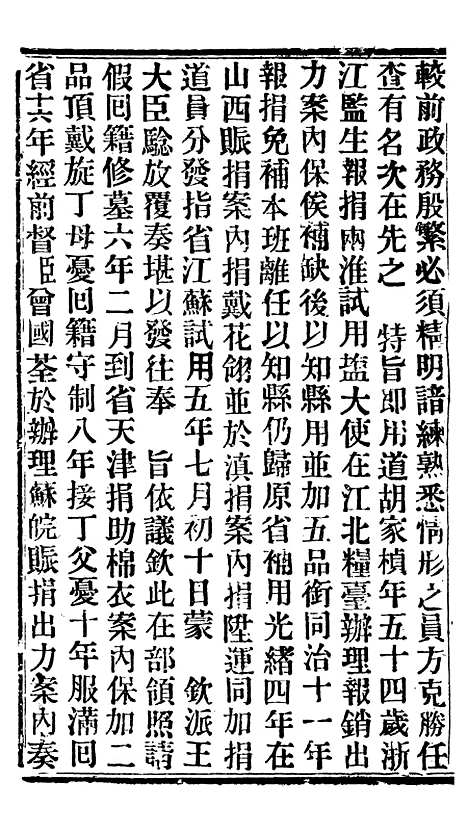 較前政務殷繁必須精明諳練熟悉情形之員方克勝任
查有名次在先之　特旨即用道胡家楨年五十四歲浙
江監生報捐兩淮試用鹽大使在江北糧臺辦理報銷出
力案內保俟補缺後以知縣用並加五品銜同治十一年
報捐免補本班離任以知縣仍歸原省補用光緒四年在
山西賑捐案內捐戴花翎並於滇捐案內捐陞運同加捐
道員分發指省江蘇試用五年七月初十日蒙　欽派王
大臣驗放覆奏堪以發往奉　旨依議欽此在部領照請
假回籍修墓六年二月到省天津捐助棉衣案內保加二
品頂戴旋丁母憂回籍守制八年接丁父憂十年服滿回
省十六年經前督臣曾國荃於辦理蘇皖賑捐出力案內奏